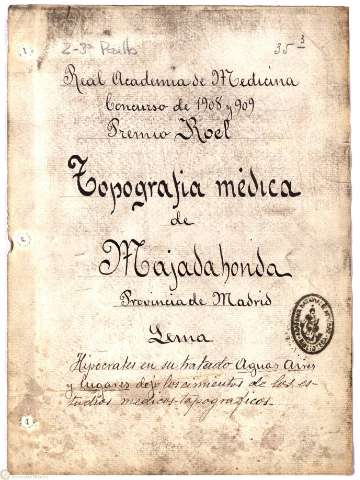 2-8ª Pasillo
35 3
Real Academia de Medicina
Concurso de 1908 y 909
Premio Roel
Topografia médica
de
Majadahonda
Provincia de Madrid
Lema
Hipócrates en su tratado Aguas Aires
y lugares dejó los cimientos de los es-
tudios medicos-topograficos.